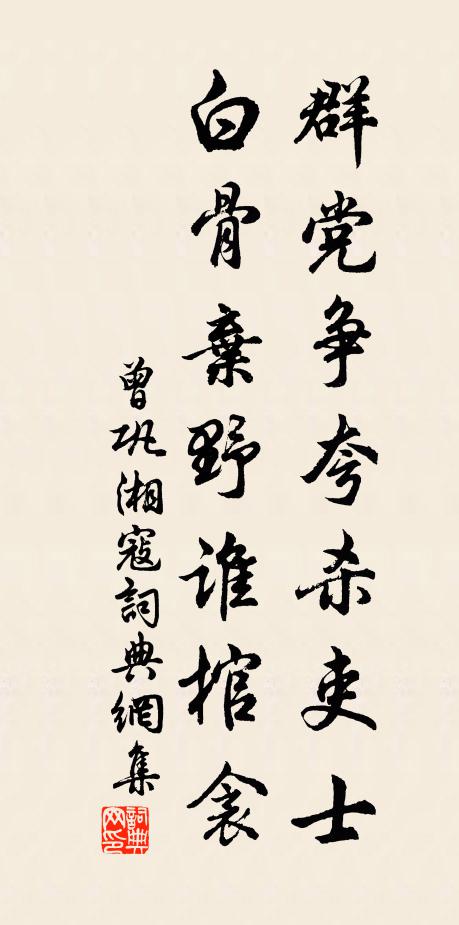 群党争夸杀吏士
白骨棄野谁棺衾
曾巩湘寇詞典網集
詞典网印